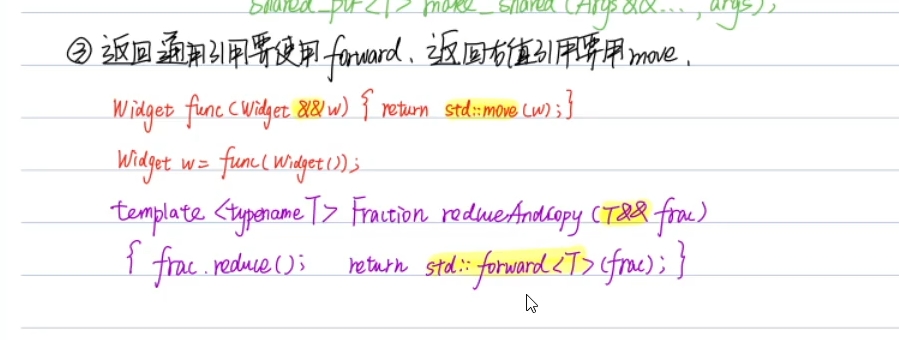 shared_ptr<T> make_shared(Args&&..., args);
③ 返回通用引用要使用forward、返回右值引用要用move.
Widget func(Widget &&w) { return std::move(w);}
Widget w= func(Widget());
template <typename T> Fraction reduceAndCopy (T&& frac)
{ frac.reduce(); return std::forward<T>(frac); }